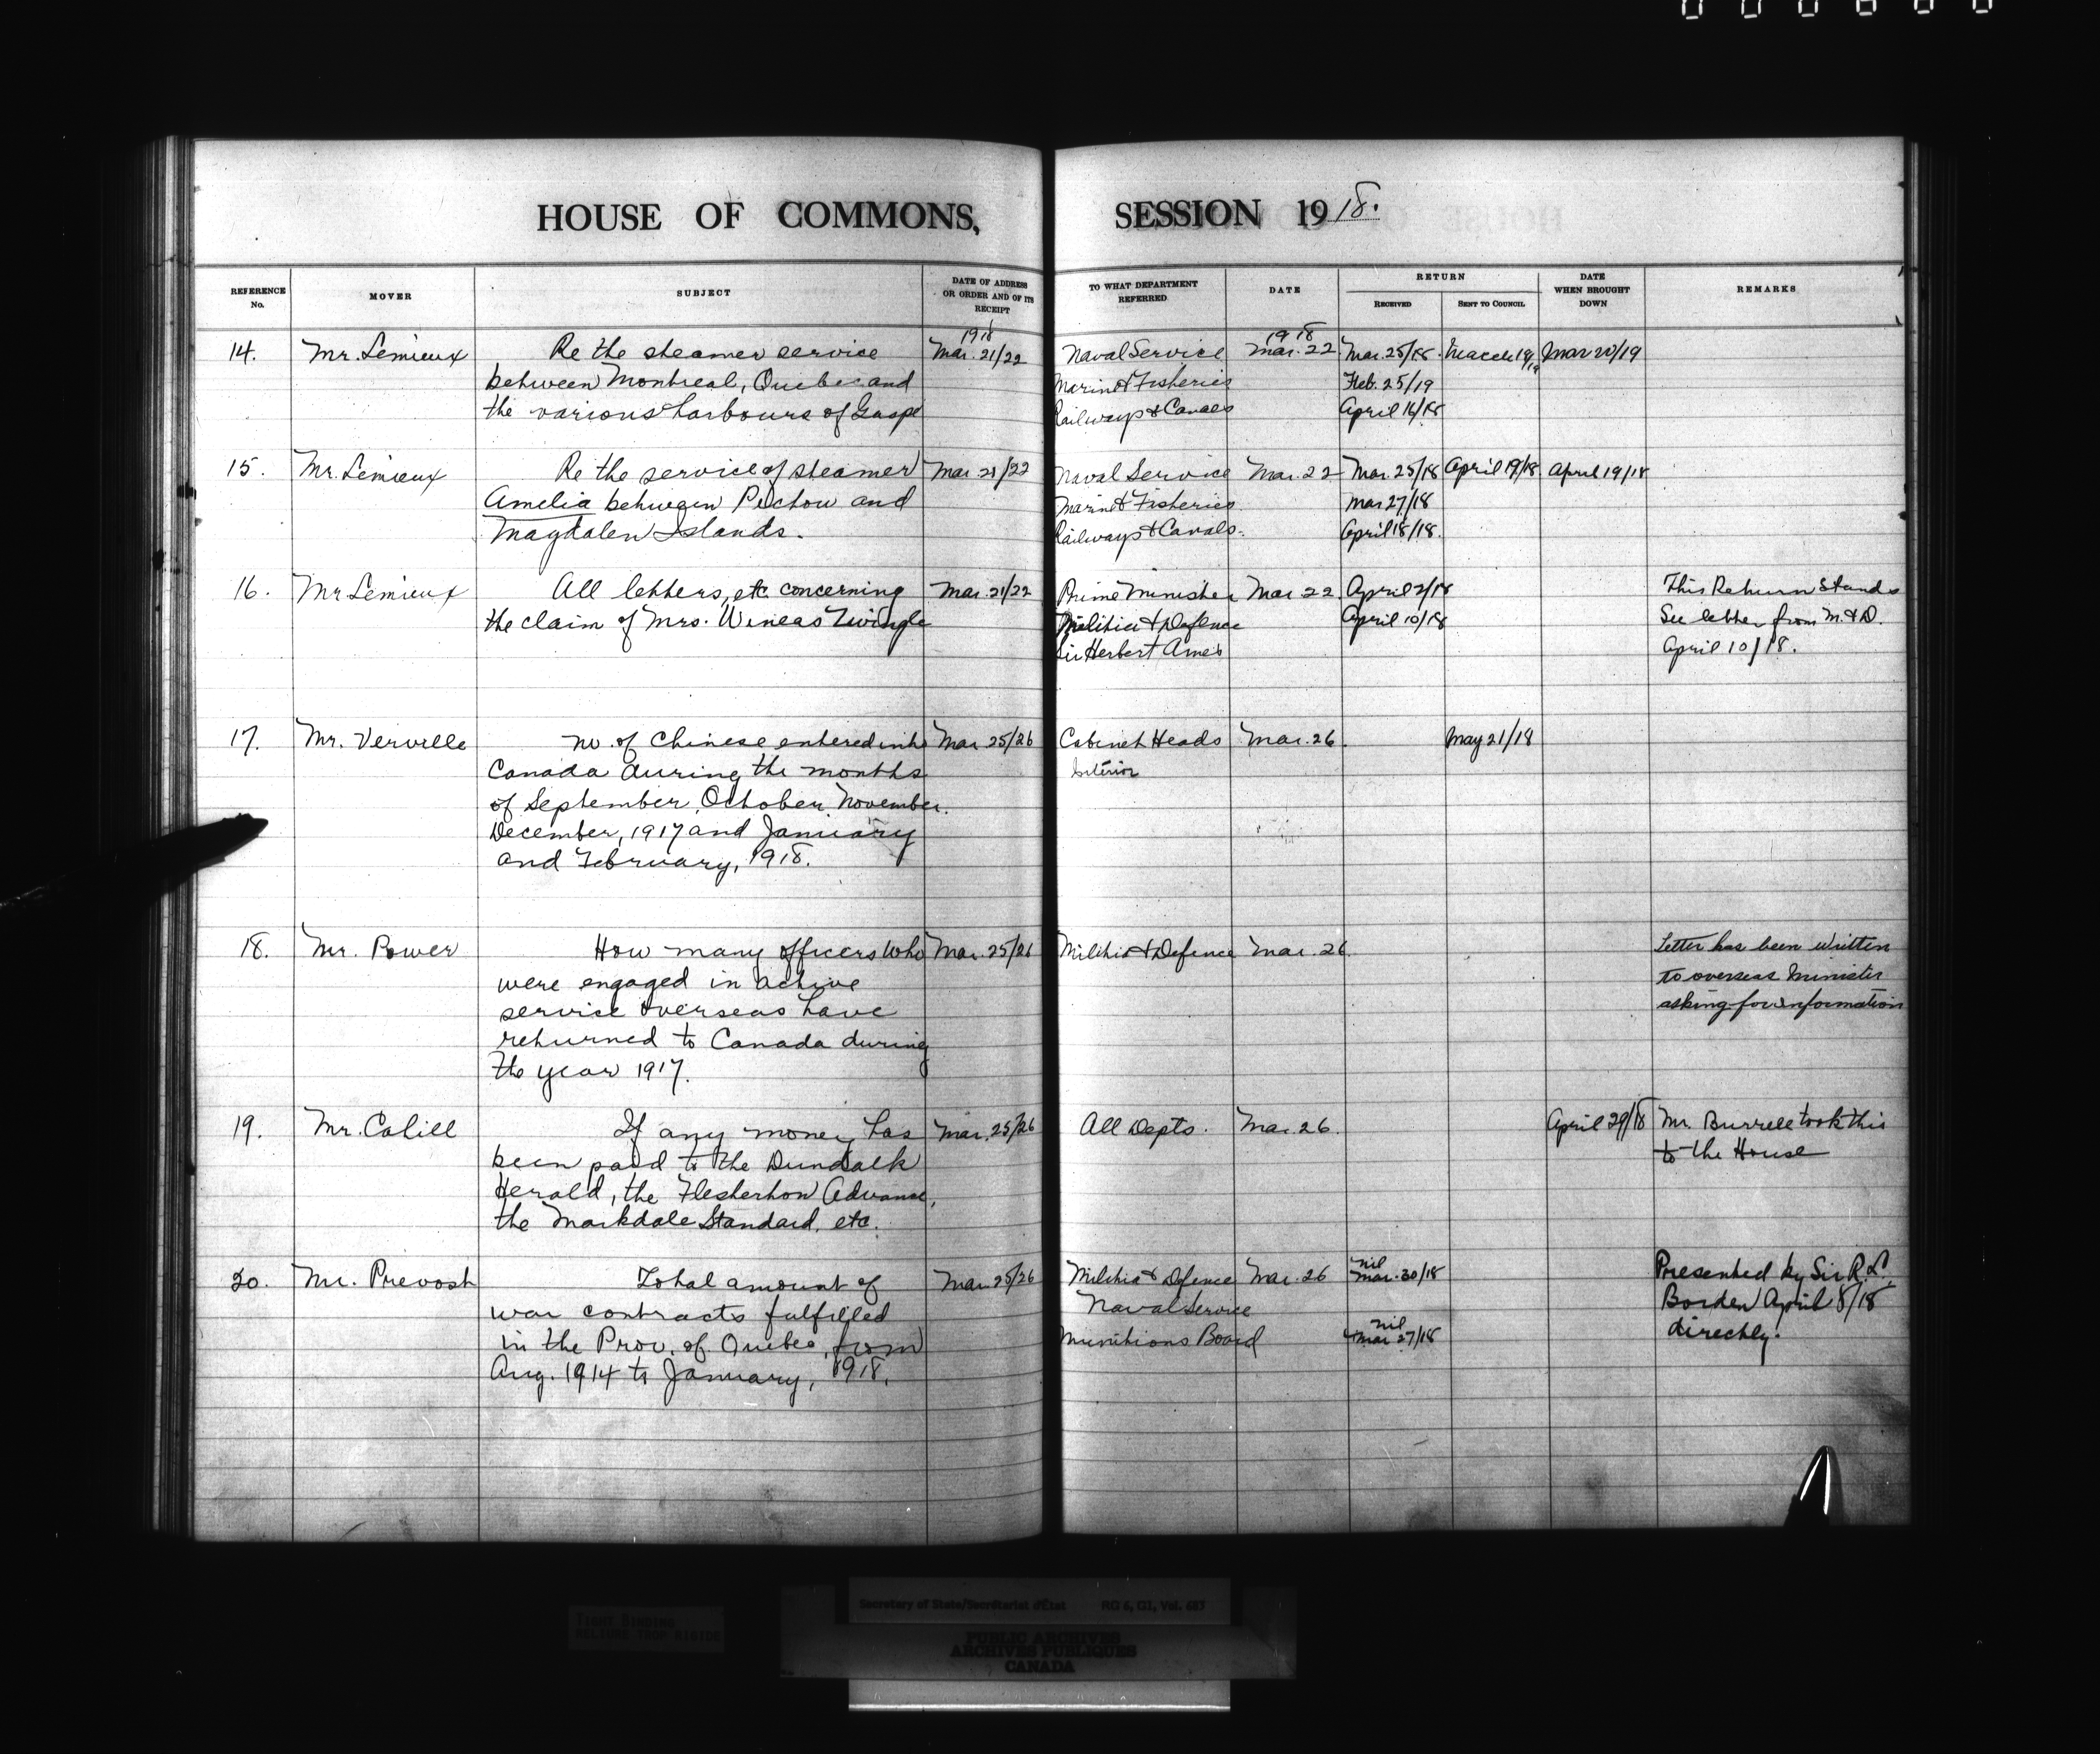 HOUSE OF COMMONS, SESSION 1918.
REFERENCE No. MOVER SUBJECT DATE OF ADDRESS OR ORDER AND OF ITS RECEIPT TO WHAT DEPARTMENT REFERRED DATE RETURN RECEIVED SENT TO COUNCIL DATE WHEN BROUGHT DOWN REMARKS
1918 1918
14. Mr. Lemieux Re the steamer service Mar. 21/22 Naval Service Mar. 22 Mar. 25/18 March 19/19 Mar 20/19
between Montreal, Quebec and Marine & Fisheries Feb. 25/19
the various harbours of Gaspe Railways & Canals April 16/18
15. Mr. Lemieux Re the service of steamer Mar. 21/22 Naval Service Mar. 22 Mar. 25/18 April 19/18 April 19/18
Amelia between Pictou and Marine & Fisheries Mar 27/18
Magdalen Islands. Railways & Canals. April 18/18.
16. Mr Lemieux All letters, etc concerning Mar. 21/22 Prime Minister Mar 22 April 2/18 This Return Stands
the claim of Mrs. Wineas Zwingle Militia & Defence April 10/18 See letter from M. & D.
Sir Herbert Ames April 10/18.
17. Mr. Verville No. of Chinese entered into Mar 25/26 Cabinet Heads Mar. 26. May 21/18
Canada during the months Interior
of September, October, November.
December, 1917 and January
and February, 1918.
18. Mr. Power How many officers who Mar. 25/26 Militia & Defence Mar. 26. Letter has been written
were engaged in active to overseas Minister
service overseas have asking for information
returned to Canada during
the year 1917.
19. Mr. Cahill If any money has Mar. 25/26 All Depts. Mar. 26. April 29/18 Mr. Burrell took this
been paid to the Dundalk to the House
Herald, the Flesherton Advance,
the Markdale Standard, etc.
20. Mr. Prevost Total amount of Mar. 25/26 Militia & Defence Mar. 26 nil Mar. 30/18 Presented by Sir R. L.
war contracts fulfilled Naval Service Borden April 8/18
in the Prov. of Quebec, from Munitions Board nil Mar 27/18 directly.
Aug. 1914 to January, 1918.
TIGHT BINDING
RELIURE TROP RIGIDE
Secretary of State/Secrétariat d'État RG 6, G1, Vol. 687
PUBLIC ARCHIVES
ARCHIVES PUBLIQUES
CANADA